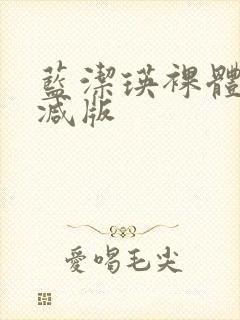 藍潔瑛裸體
減版
愛唱毛尖